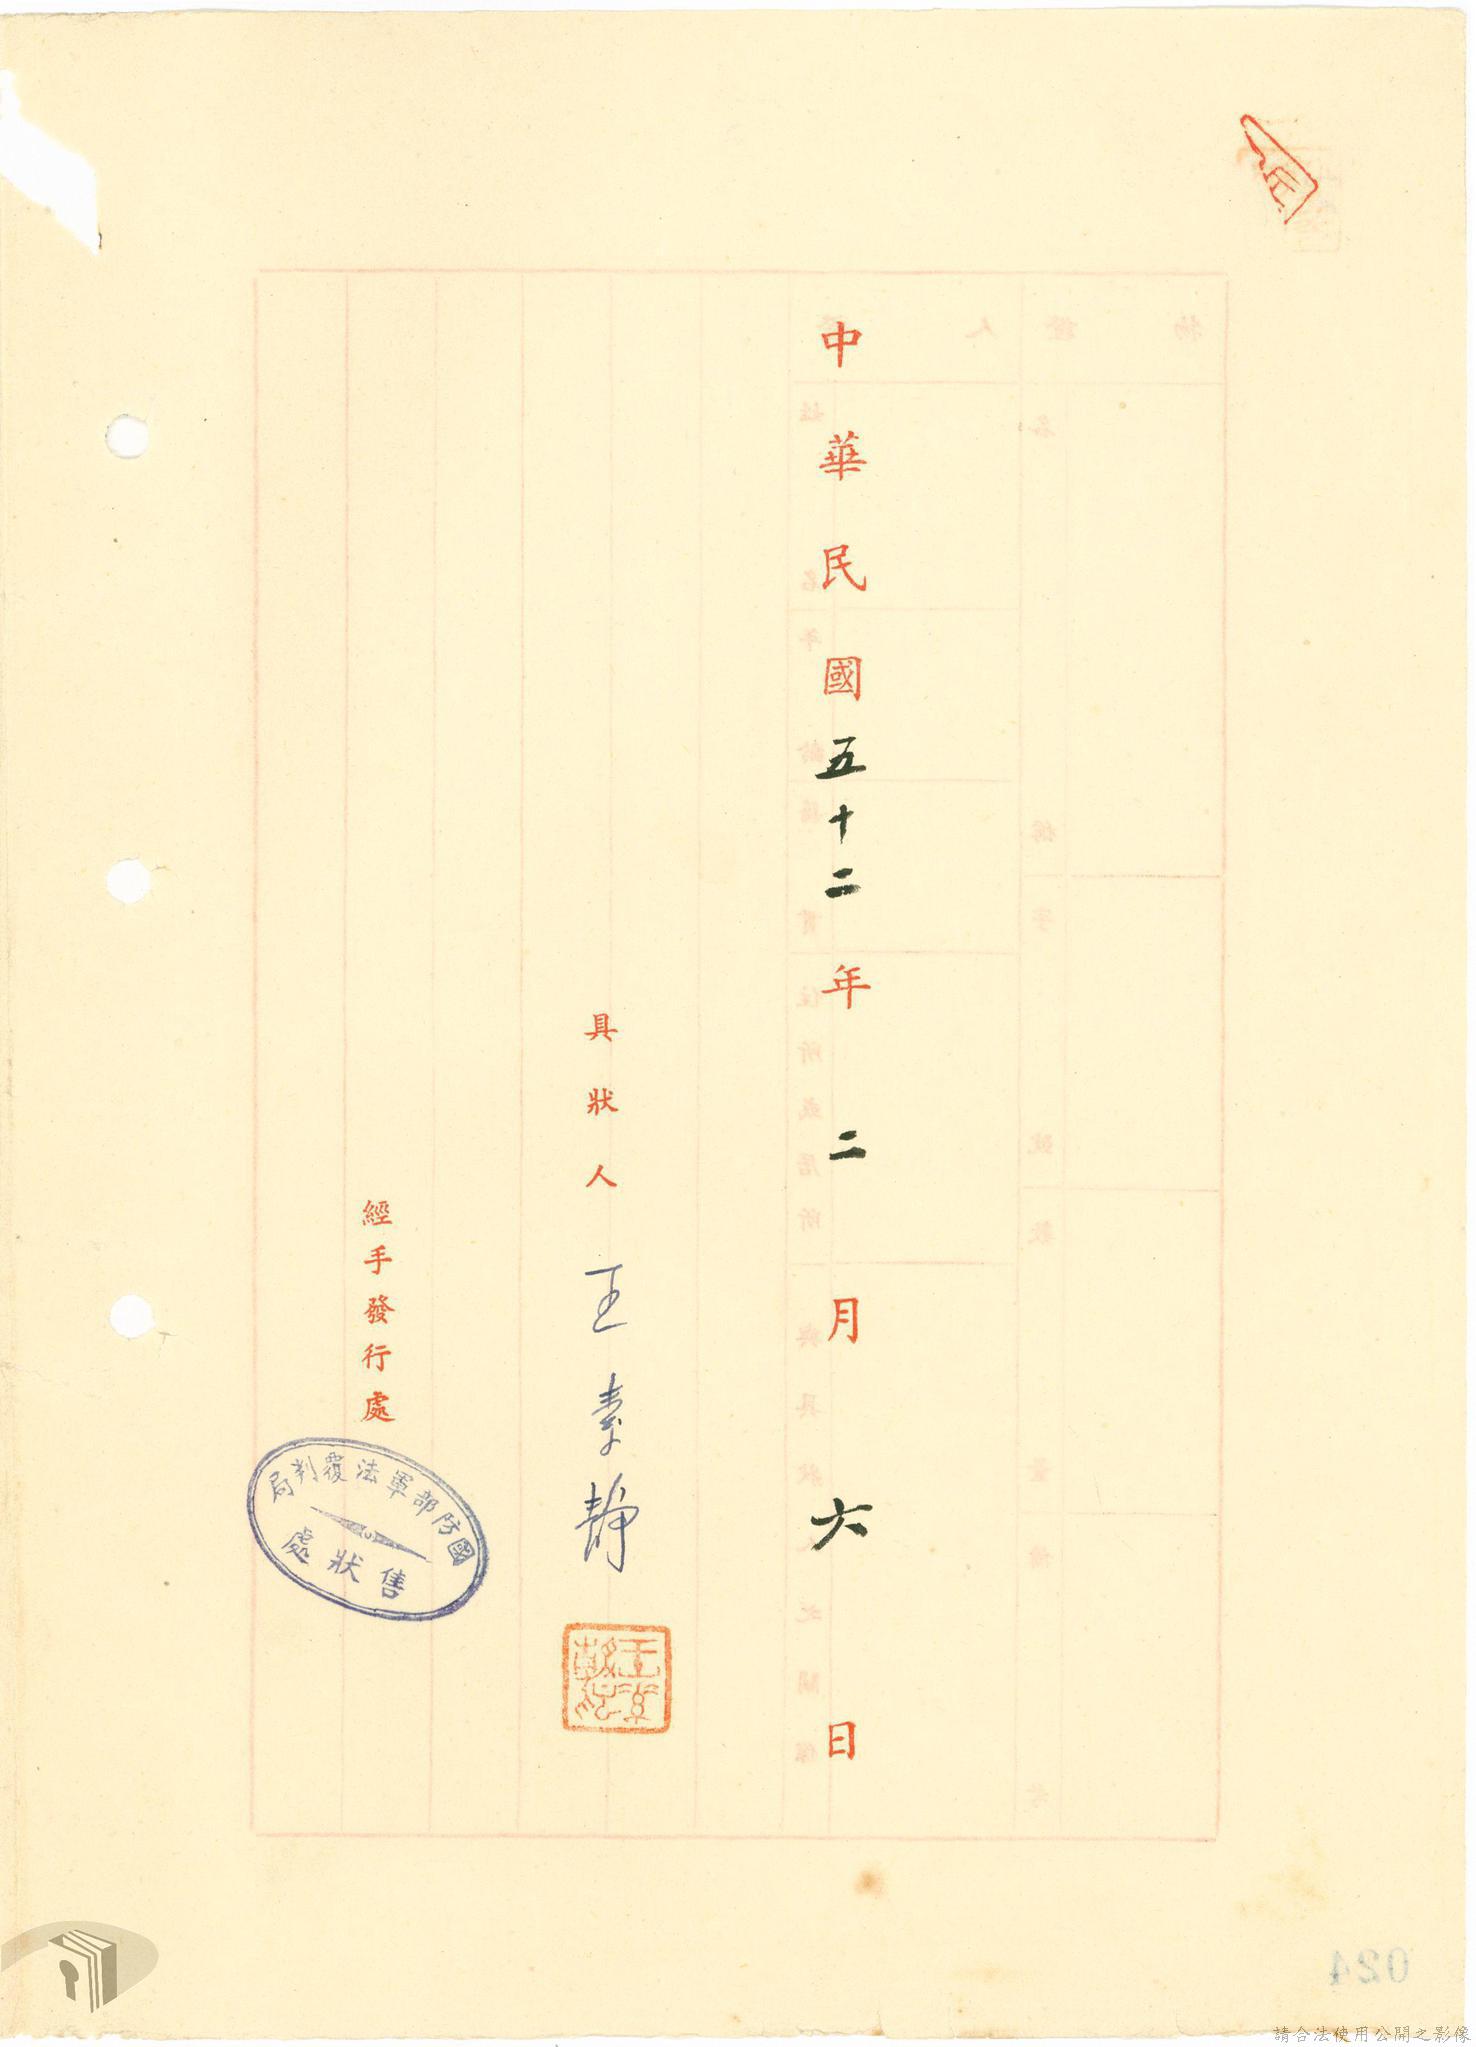 中華民國五十二年二月六日
具狀人 王素靜
經手發行處
國防部軍法覆判局
售狀處
024
請合法使用公開之影像